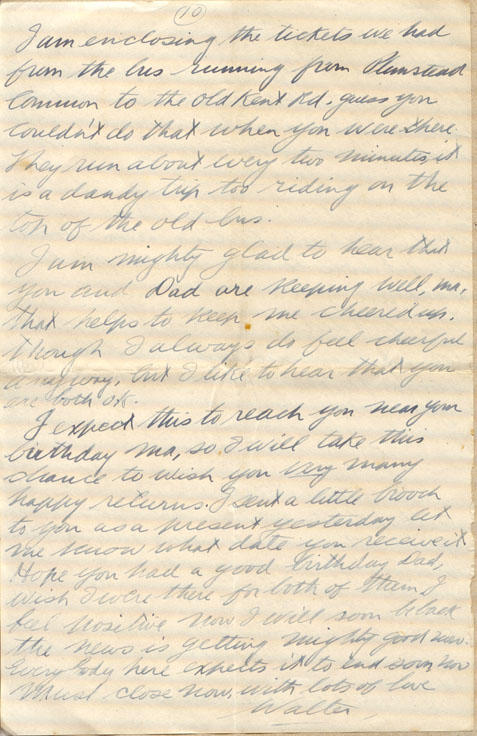 (10)
I am enclosing the tickets we had
from the bus running from Plumstead
Common to the Old Kent Rd. guess you
couldn't do that when you were there.
They run about every two minutes, it
is a dandy trip too riding on the
top of the old bus.
I am mighty glad to hear that
you and Dad are keeping well, ma,
that helps to keep me cheered up,
though I always do feel cheerful
anyway, but I like to hear that you
are both O.K.
I expect this to reach you near your
birthday ma, so I will take this
chance to wish you very many
happy returns. I sent a little brooch
to you as a present yesterday let
me know what date you receive it
Hope you had a good birthday Dad,
wish I were there for both of them, I
feel positive now I will soon be back
the news is getting mighty good now.
Everybody here expects it to end soon now
Must close now, with lots of love
Walter,